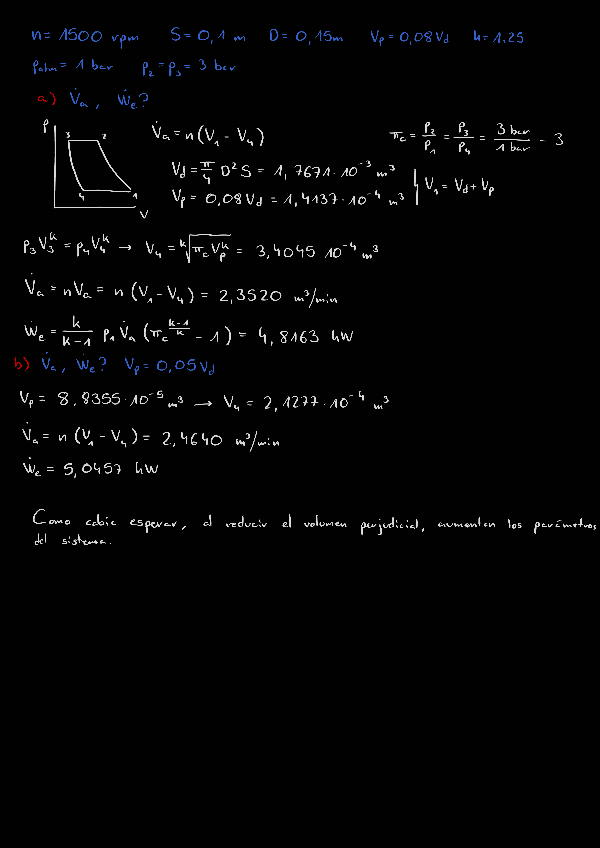 n = 1500 rpm S = 0,1 m D = 0,15m Vp = 0,08Vd k = 1,25
Patm = 1 bar P2 = P3 = 3 bar
a) V̇a, Ẇe?
P 3 2 4 1 V
V̇a = n(V1 - V4)
πc = P2/P1 = P3/P4 = 3 bar/1 bar - 3
Vd = π/4 D² S = 1,7671·10⁻³ m³
Vp = 0,08Vd = 1,4137·10⁻⁴ m³ | V1 = Vd + Vp
p3V3^k = p4V4^k → V4 = ᵏ√(πc Vp^k) = 3,4045 10⁻⁴ m³
V̇a = nVa = n (V1 - V4) = 2,3520 m³/min
Ẇe = k/(k-1) P1 V̇a (πc^((k-1)/k) - 1) = 4,8163 kW
b) V̇a, Ẇe? Vp = 0,05Vd
Vp = 8,8355·10⁻⁵ m³ → V4 = 2,1277·10⁻⁴ m³
V̇a = n (V1 - V4) = 2,4640 m³/min
Ẇe = 5,0457 kW
Como cabía esperar, al reducir el volumen perjudicial, aumentan los parámetros
del sistema.